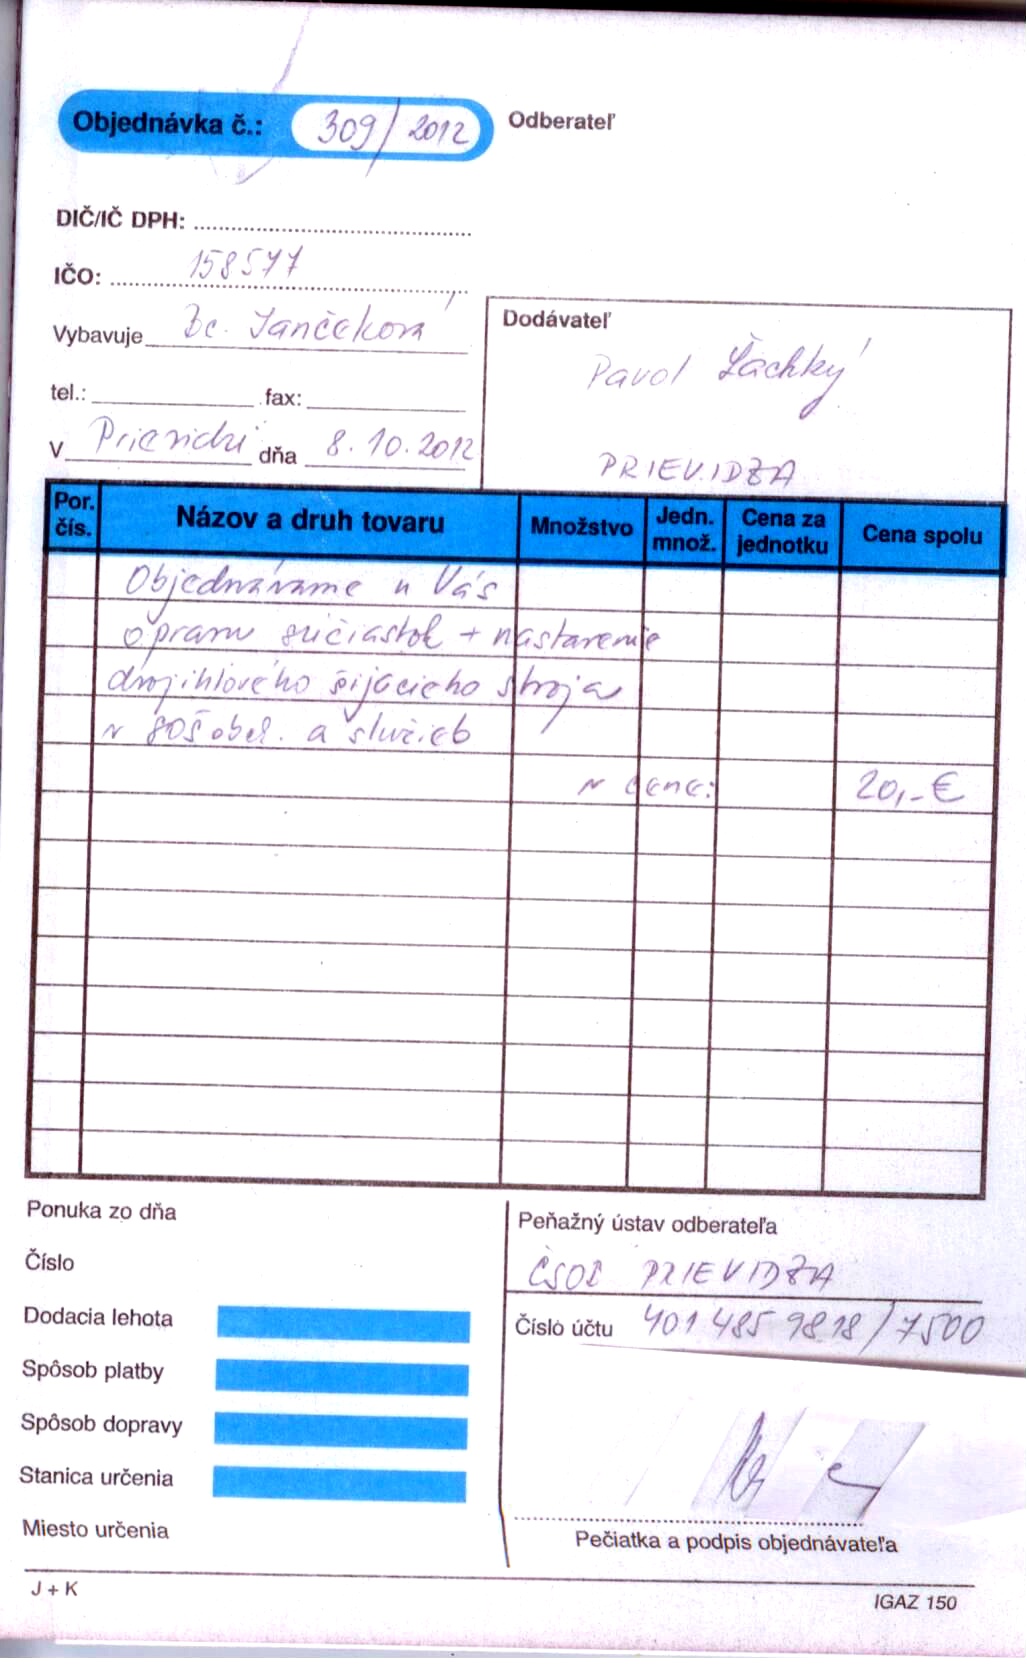 Objednávka č.: 309/2012
Odberateľ
DIČ/IČ DPH:
IČO: 158577
Vybavuje Bc. Jančeková
tel.: fax:
V Prievidzi dňa 8.10.2012
Dodávateľ
Pavol Ľachký
PRIEVIDZA
Por. čís. Názov a druh tovaru Množstvo Jedn. množ. Cena za jednotku Cena spolu
Objednávame u Vás
opravu súčiastok + nastavenie
dvojihlového šijacieho stroja
v SOŠ obch. a služieb
v cene: 20,-€
Ponuka zo dňa
Číslo
Dodacia lehota
Spôsob platby
Spôsob dopravy
Stanica určenia
Miesto určenia
Peňažný ústav odberateľa
ČSOB PRIEVIDZA
Číslo účtu 401 485 9818/7500
Pečiatka a podpis objednávateľa
J + K
IGAZ 150